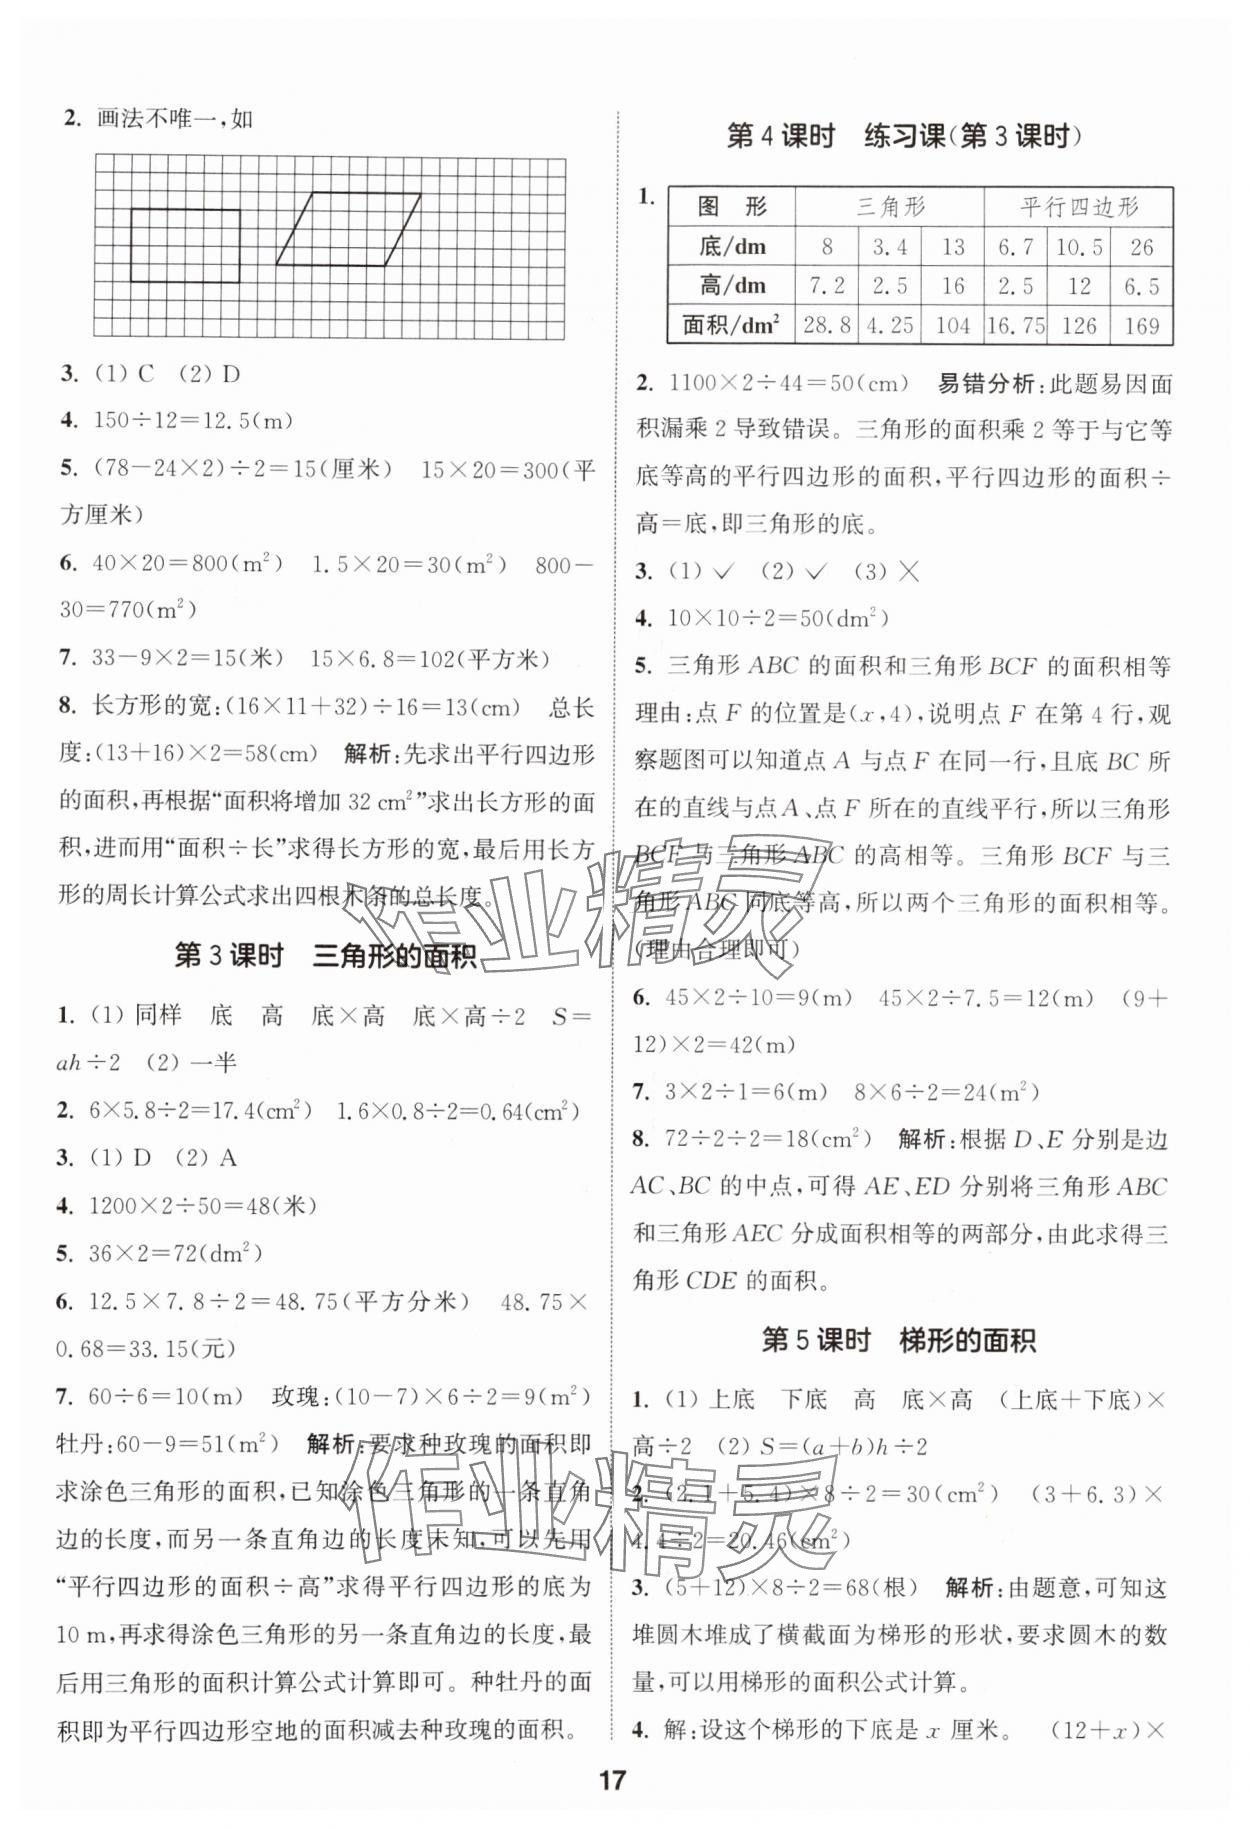 2. 画法不唯一,如
3. (1) C (2) D
4. 150÷12=12.5(m)
5. (78-24×2)÷2=15(厘米) 15×20=300(平
方厘米)
6. 40×20=800(m²) 1.5×20=30(m²) 800-
30=770(m²)
7. 33-9×2=15(米) 15×6.8=102(平方米)
8. 长方形的宽:(16×11+32)÷16=13(cm) 总长
度:(13+16)×2=58(cm) 解析:先求出平行四边形
的面积,再根据“面积将增加 32 cm²”求出长方形的面
积,进而用“面积÷长”求得长方形的宽,最后用长方
形的周长计算公式求出四根木条的总长度。
第3课时 三角形的面积
1. (1) 同样 底 高 底×高 底×高÷2 S=
ah÷2 (2) 一半
2. 6×5.8÷2=17.4(cm²) 1.6×0.8÷2=0.64(cm²)
3. (1) D (2) A
4. 1200×2÷50=48(米)
5. 36×2=72(dm²)
6. 12.5×7.8÷2=48.75(平方分米) 48.75×
0.68=33.15(元)
7. 60÷6=10(m) 玫瑰:(10-7)×6÷2=9(m²)
牡丹:60-9=51(m²) 解析:要求种玫瑰的面积即
求涂色三角形的面积,已知涂色三角形的一条直角
边的长度,而另一条直角边的长度未知,可以先用
“平行四边形的面积÷高”求得平行四边形的底为
10 m,再求得涂色三角形的另一条直角边的长度,最
后用三角形的面积计算公式计算即可。种牡丹的面
积即为平行四边形空地的面积减去种玫瑰的面积。
第4课时 练习课(第3课时)
1.
图 形 三角形 平行四边形
底/dm 8 3.4 13 6.7 10.5 26
高/dm 7.2 2.5 16 2.5 12 6.5
面积/dm² 28.8 4.25 104 16.75 126 169
2. 1100×2÷44=50(cm) 易错分析:此题易因面
积漏乘 2 导致错误。三角形的面积乘 2 等于与它等
底等高的平行四边形的面积,平行四边形的面积÷
高=底,即三角形的底。
3. (1) ✓ (2) ✓ (3) ×
4. 10×10÷2=50(dm²)
5. 三角形 ABC 的面积和三角形 BCF 的面积相等
理由:点 F 的位置是(x,4),说明点 F 在第 4 行,观
察题图可以知道点 A 与点 F 在同一行,且底 BC 所
在的直线与点 A、点 F 所在的直线平行,所以三角形
BCF 与三角形 ABC 的高相等。三角形 BCF 与三
角形 ABC 同底等高,所以两个三角形的面积相等。
(理由合理即可)
6. 45×2÷10=9(m) 45×2÷7.5=12(m) (9+
12)×2=42(m)
7. 3×2÷1=6(m) 8×6÷2=24(m²)
8. 72÷2÷2=18(cm²) 解析:根据 D、E 分别是边
AC、BC 的中点,可得 AE、ED 分别将三角形 ABC
和三角形 AEC 分成面积相等的两部分,由此求得三
角形 CDE 的面积。
第5课时 梯形的面积
1. (1) 上底 下底 高 底×高 (上底+下底)×
高÷2 (2) S=(a+b)h÷2
2. (2.1+5.4)×8÷2=30(cm²) (3+6.3)×
4.4÷2=20.46(cm²)
3. (5+12)×8÷2=68(根) 解析:由题意,可知这
堆圆木堆成了横截面为梯形的形状,要求圆木的数
量,可以用梯形的面积公式计算。
4. 解:设这个梯形的下底是 x 厘米。 (12+x)×
17
作业精灵
作业精灵